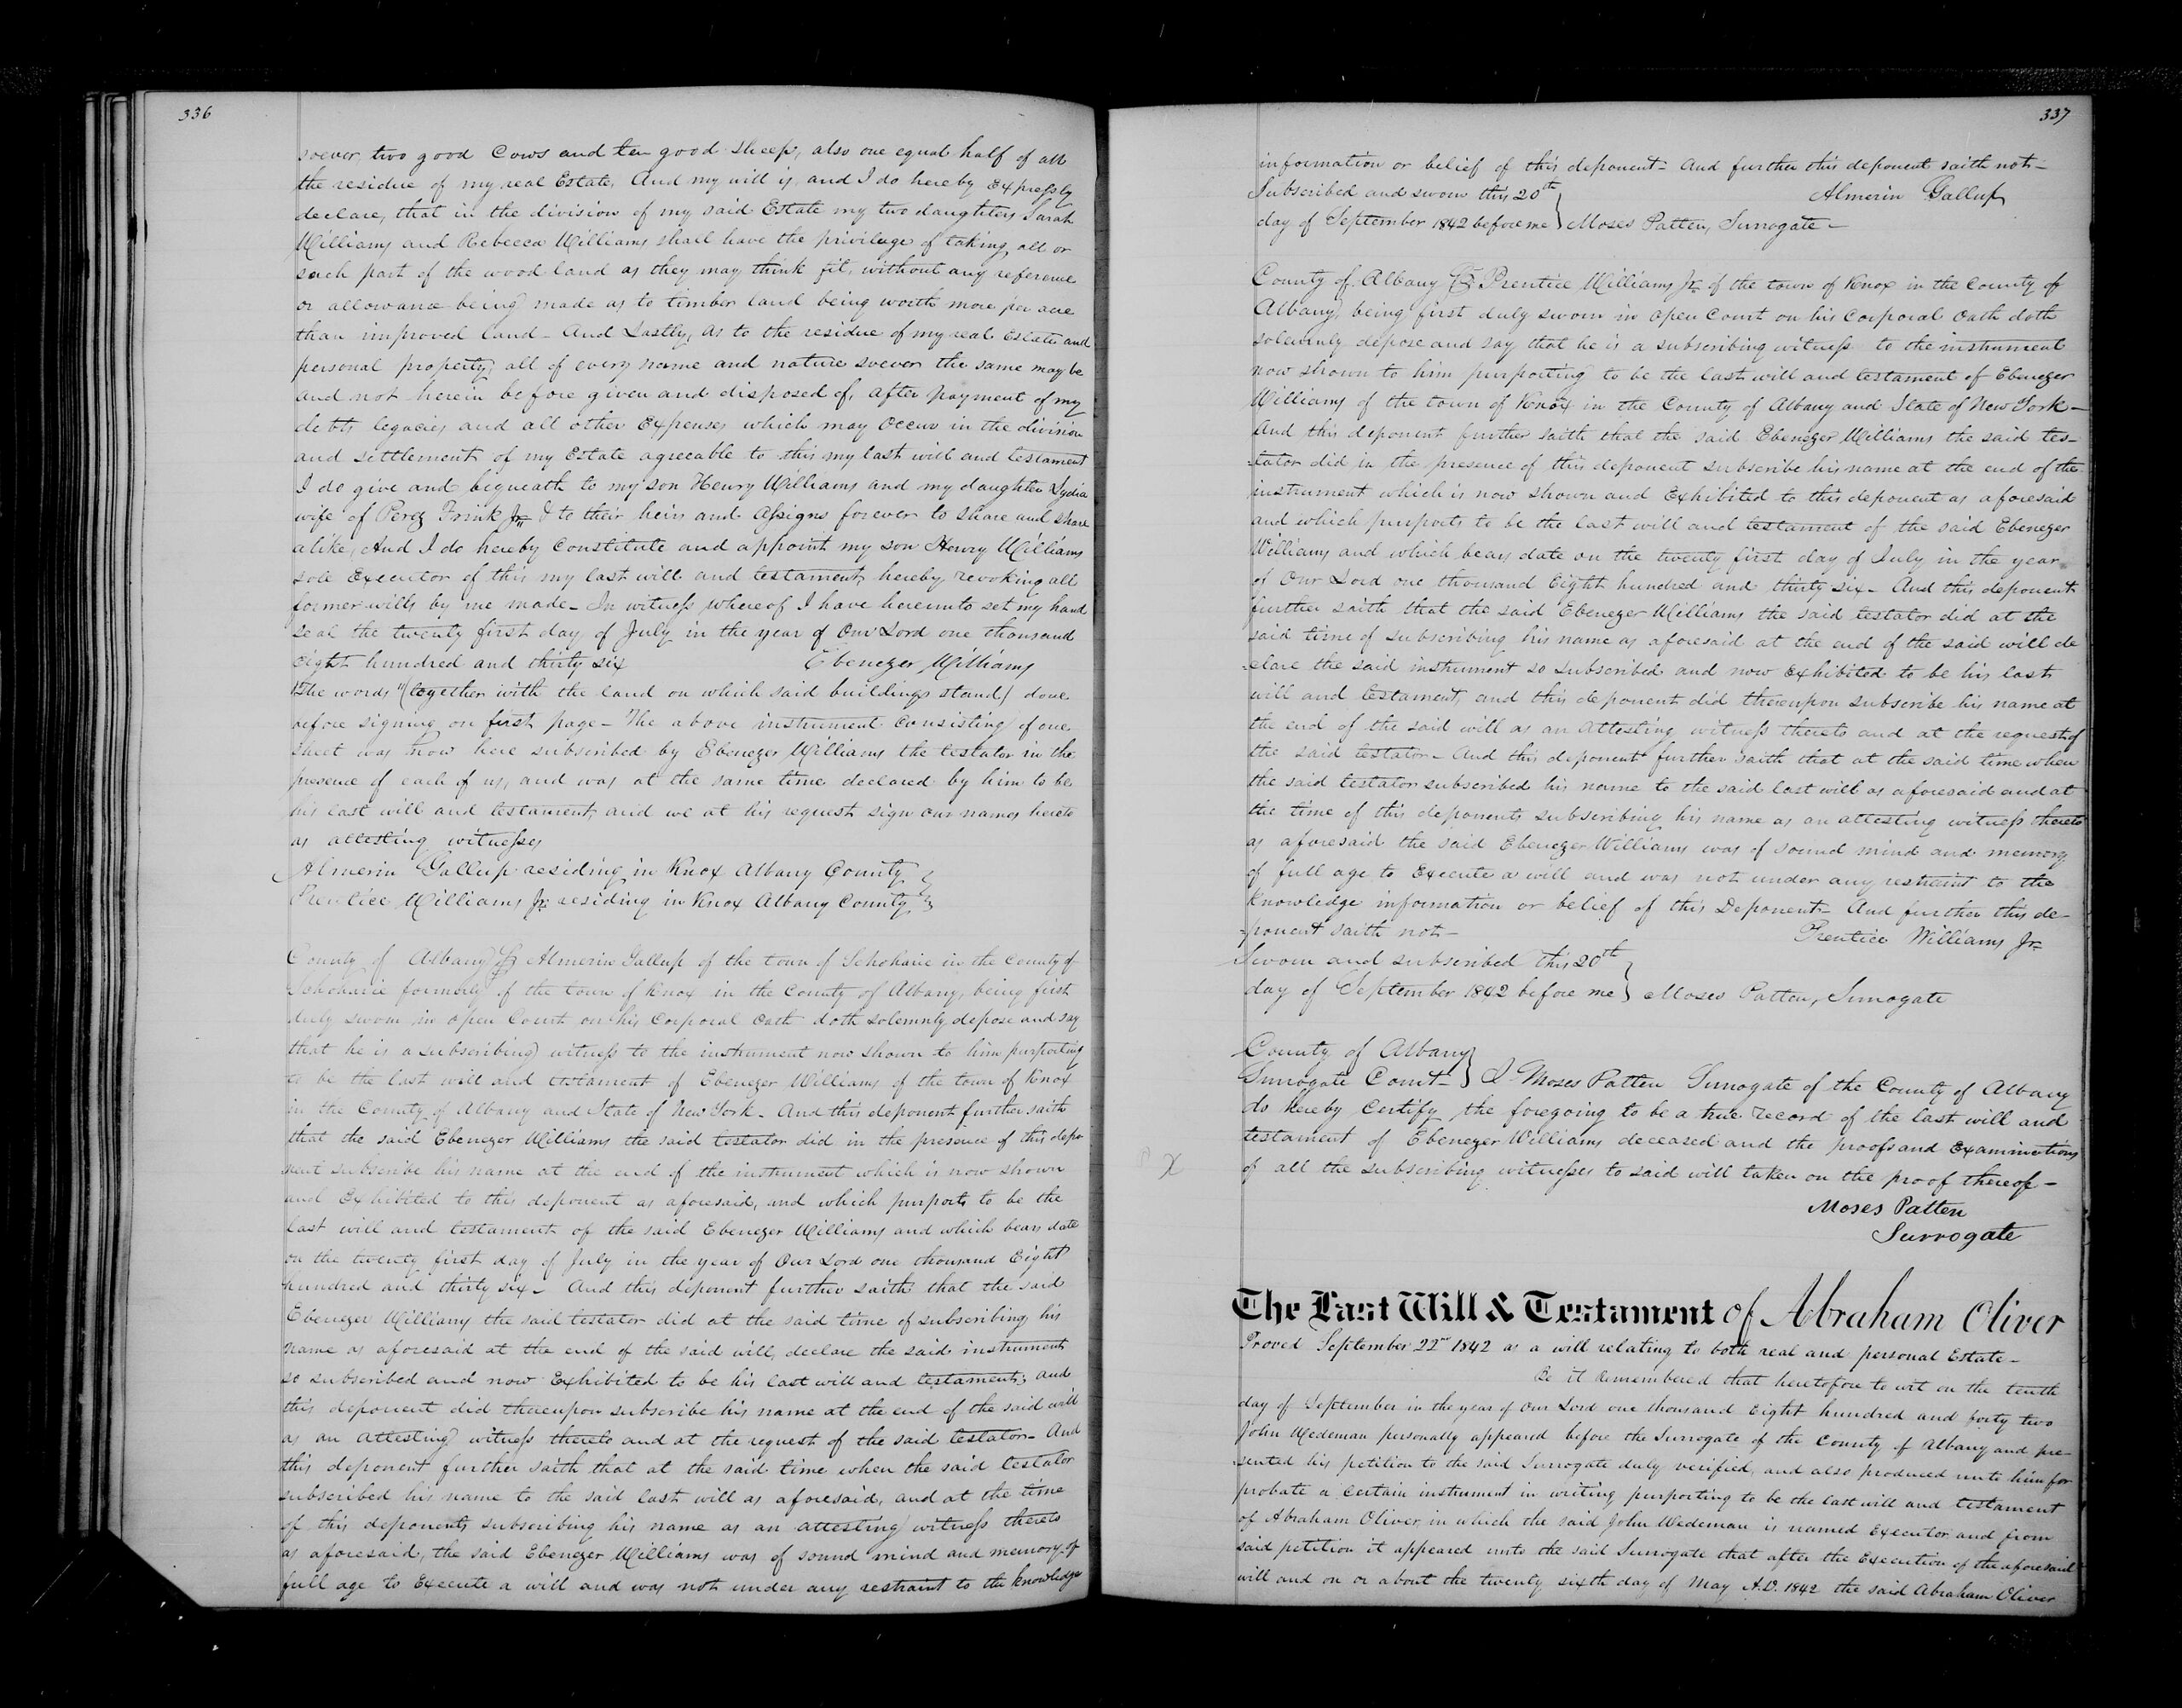 336
soever, two good Cows and ten good sheep, also one equal half of all
the residue of my real Estate, And my will is, and I do hereby Expressly
declare, that in the division of my said Estate my two daughters Sarah
Williams and Rebecca Williams shall have the privilege of taking all or
such part of the wood land as they may think fit, without any reference
or allowance being made as to timber land being worth more per acre
than improved land - And Lastly, as to the residue of my real Estate and
personal property, all of every name and nature soever the same may be
and not herein before given and disposed of, after payment of my
debts legacies and all other Expenses which may Occur in the division
and settlement of my Estate agreeable to this my last will and testament
I do give and bequeath to my son Henry Williams and my daughter Lydia
wife of Perez Frink Jr. & to their heirs and Assigns forever to share and share
alike, And I do hereby Constitute and appoint my son Henry Williams
sole Executor of this my last will and testament, hereby revoking all
former wills by me made - In witness whereof I have hereunto set my hand
seal the twenty first day of July in the year of Our Lord one thousand
Eight hundred and thirty six Ebenezer Williams
The words "(together with the land on which said buildings stand) done
before signing on first page - The above instrument Consisting of one
sheet was now here subscribed by Ebenezer Williams the testator in the
presence of each of us, and was at the same time declared by him to be
his last will and testament, and we at his request sign our names hereto
as attesting witnesses
Almerin Gallup residing in Knox Albany County
Prentice Williams Jr. residing in Knox Albany County
County of Albany Ss Almerin Gallup of the town of Schoharie in the County of
Schoharie formerly of the town of Knox in the County of Albany, being first
duly sworn in open Court on his Corporal Oath doth solemnly depose and say
that he is a subscribing witness to the instrument now shown to him purporting
to be the last will and testament of Ebenezer Williams of the town of Knox
in the County of Albany and State of New York - And this deponent further saith
that the said Ebenezer Williams the said testator did in the presence of this depo
nent subscribe his name at the end of the instrument which is now shown
and Exhibited to this deponent as aforesaid, and which purports to be the
last will and testament of the said Ebenezer Williams and which bears date
on the twenty first day of July in the year of Our Lord one thousand Eight
hundred and thirty six - And this deponent further saith that the said
Ebenezer Williams the said testator did at the said time of subscribing his
name as aforesaid at the end of the said will, declare the said instrument
so subscribed and now Exhibited to be his last will and testament; and
this deponent did thereupon subscribe his name at the end of the said will
as an attesting witness thereto and at the request of the said testator - And
this deponent further saith that at the said time when the said testator
subscribed his name to the said last will as aforesaid, and at the time
of this deponents subscribing his name as an attesting witness thereto
as aforesaid, the said Ebenezer Williams was of sound mind and memory, of
full age to Execute a will and was not under any restraint to the knowledge
337
information or belief of this deponent - And further this deponent saith not -
Subscribed and sworn this 20th Almerin Gallup
day of September 1842 before me Moses Patten, Surrogate -
County of Albany Ss Prentice Williams Jr. of the town of Knox in the County of
Albany, being first duly sworn in open Court on his Corporal Oath doth
solemnly depose and say that he is a subscribing witness to the instrument
now shown to him purporting to be the last will and testament of Ebenezer
Williams of the town of Knox in the County of Albany and State of New York -
And this deponent further saith that the said Ebenezer Williams the said tes-
-tator did in the presence of this deponent subscribe his name at the end of the
instrument which is now shown and Exhibited to this deponent as aforesaid
and which purports to be the last will and testament of the said Ebenezer
Williams and which bears date on the twenty first day of July in the year
of Our Lord one thousand Eight hundred and thirty six - And this deponent
further saith that the said Ebenezer Williams the said testator did at the
said time of subscribing his name as aforesaid at the end of the said will de
-clare the said instrument so subscribed and now Exhibited to be his last
will and testament, and this deponent did thereupon subscribe his name at
the end of the said will as an attesting witness thereto and at the request of
the said testator - And this deponent further saith that at the said time when
the said testator subscribed his name to the said last will as aforesaid and at
the time of this deponents subscribing his name as an attesting witness thereto
as aforesaid the said Ebenezer Williams was of sound mind and memory
of full age to Execute a will and was not under any restraint to the
Knowledge information or belief of this Deponent - And further this de-
-ponent saith not - Prentice Williams Jr.
Sworn and subscribed this 20th
day of September 1842 before me Moses Patten, Surrogate
County of Albany
Surrogate Court - I Moses Patten Surrogate of the County of Albany
do hereby Certify the foregoing to be a true record of the last will and
testament of Ebenezer Williams deceased and the proofs and Examinations
of all the subscribing witnesses to said will taken on the proof thereof -
X
Moses Patten
Surrogate
The Last Will & Testament of Abraham Oliver
Proved September 22nd 1842 as a will relating to both real and personal Estate -
Be it Remembered that heretofore to wit on the tenth
day of September in the year of Our Lord one thousand Eight hundred and forty two
John Wedeman personally appeared before the Surrogate of the County of Albany and pre-
sented his petition to the said Surrogate duly verified, and also produced unto him for
probate a Certain instrument in writing purporting to be the last will and testament
of Abraham Oliver, in which the said John Wedeman is named Executor and from
said petition it appeared unto the said Surrogate that after the Execution of the aforesaid
will and on or about the twenty sixth day of May A.D. 1842 the said Abraham Oliver